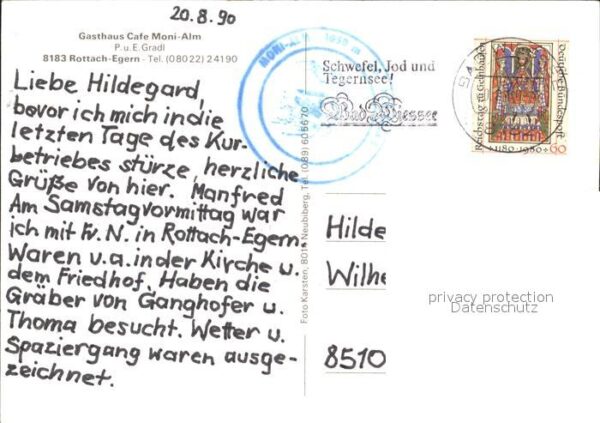 20.8.90
Gasthaus Cafe Moni-Alm
P. u. E. Gradl
8183 Rottach-Egern - Tel. (08022) 24190
Liebe Hildegard,
bevor ich mich in die
letzten Tage des Kur-
betriebes stürze, herzliche
Grüße von hier. Manfred
Am Samstagvormittag war
ich mit Fr. N. in Rottach-Egern.
Waren u.a. in der Kirche u.
dem Friedhof. Haben die
Gräber von Ganghofer u.
Thoma besucht. Wetter u.
Spaziergang waren ausge-
zeichnet.
MONI-ALM
Foto Karsten, 8014 Neubiberg, Tel. (089) 605670
Schwefel, Jod und
Tegernsee!
Bad Wiessee
Reichstag zu Gelnhausen
Deutsche Bundespost
1180-1980 60
Hilde
Wilhe
8510
privacy protection
Datenschutz